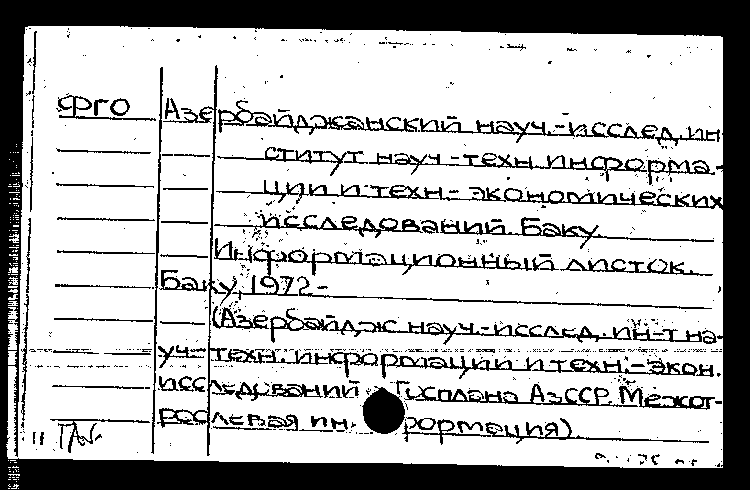 ФГО Азербайджанский науч.-исслед. ин-
ститут науч-техн. информа-
ции и техн.- экономических
исследований. Баку.
Информационный листок.
Баку, 1972-
(Азербайдж науч.-исслед. ин-т на-
уч-техн. информации и техн.-экон.
исследований Госплана АзССР. Межот-
раслевая информация).